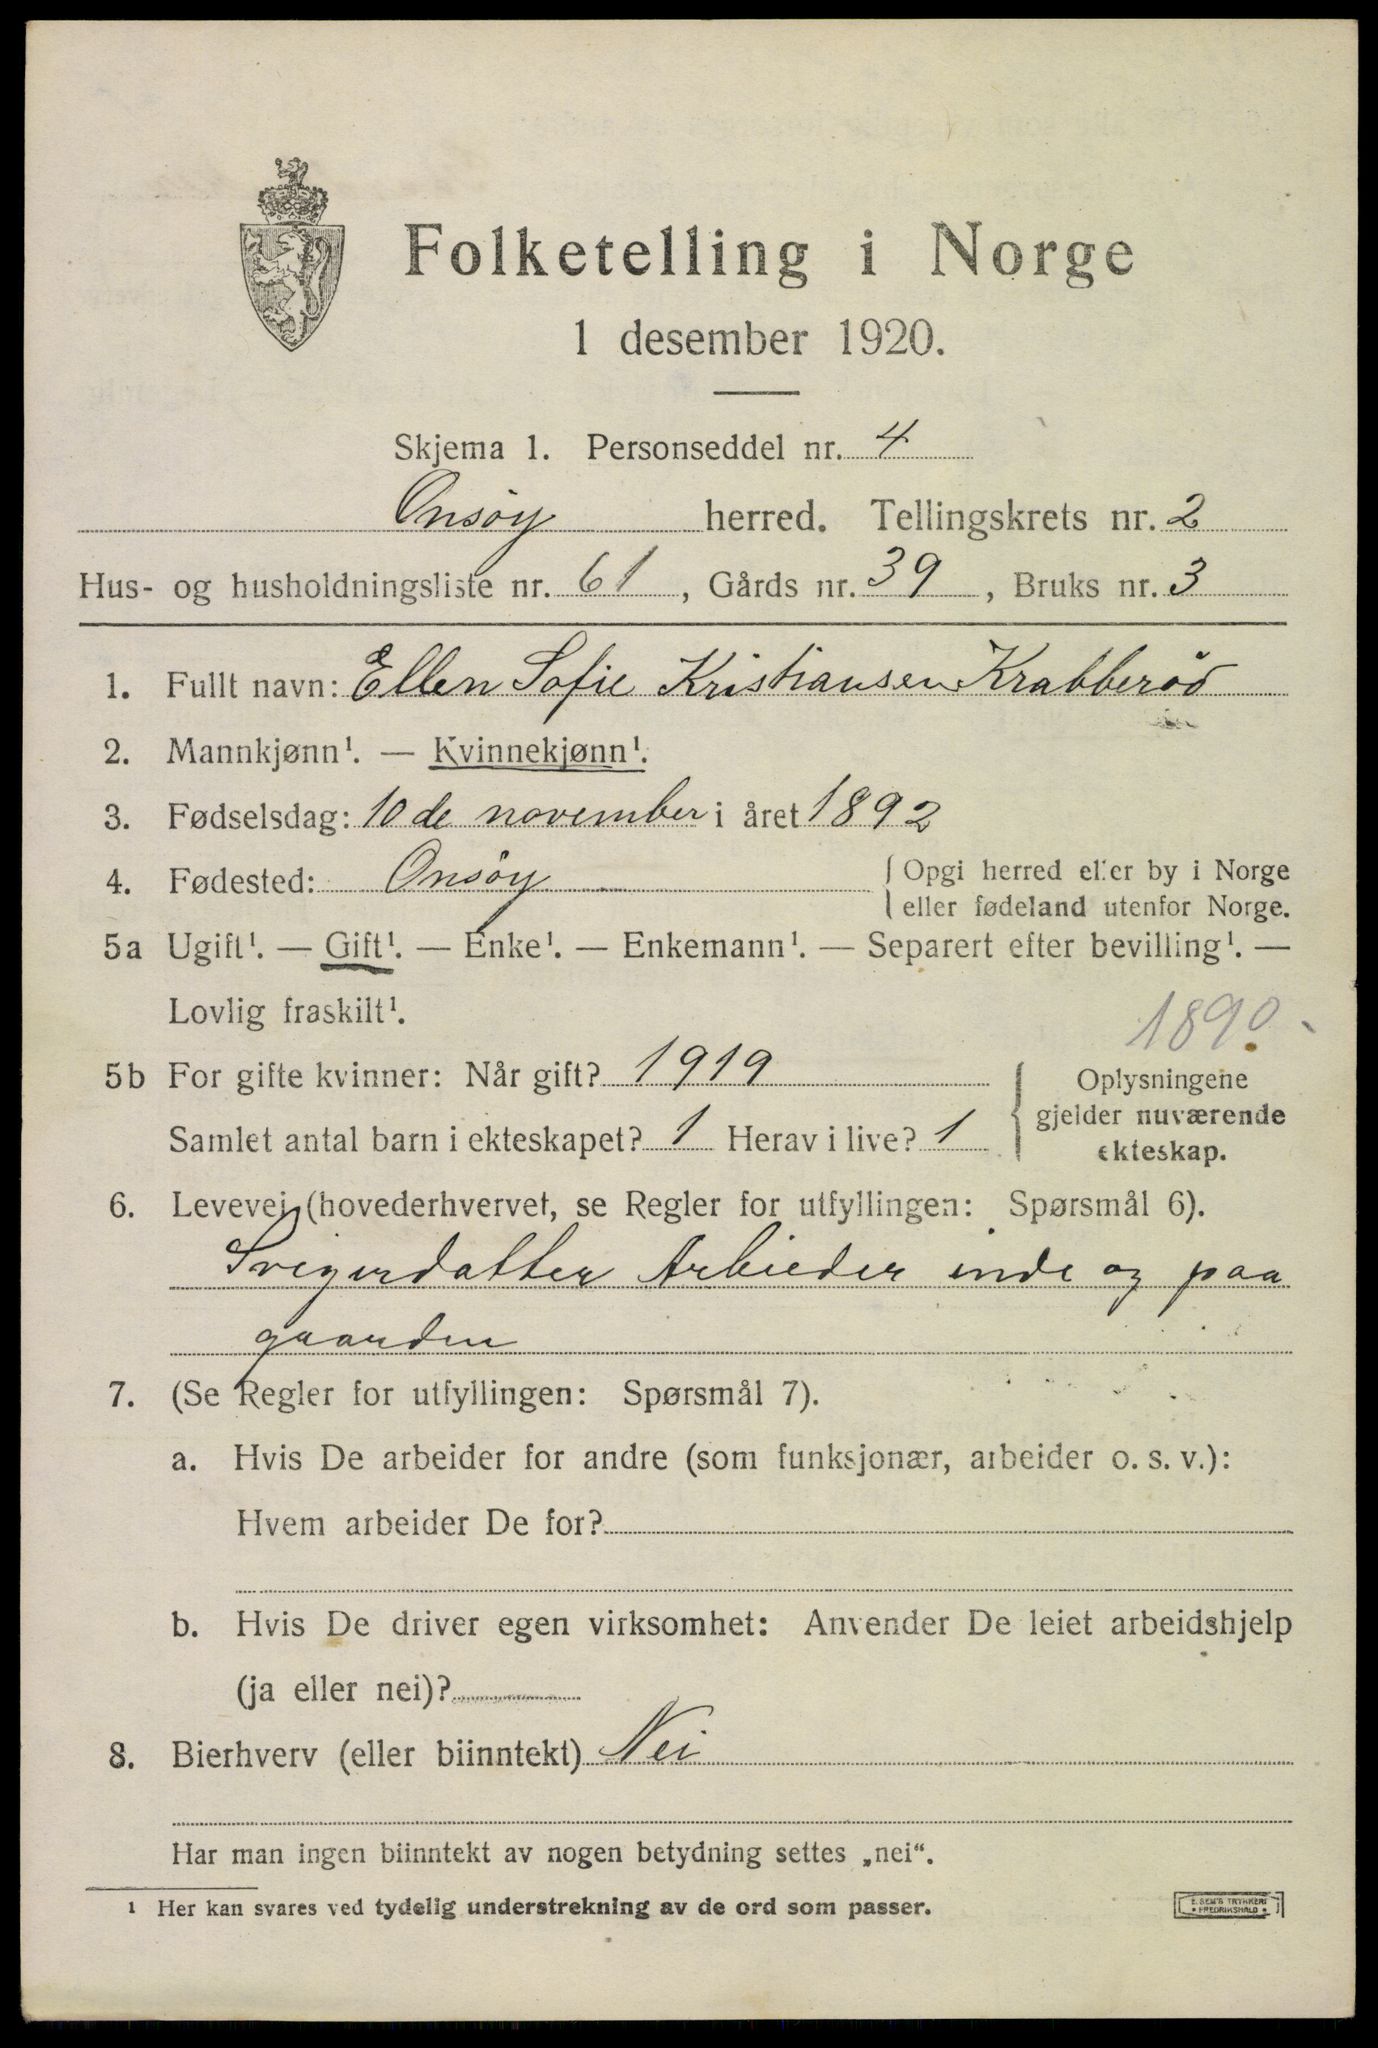 Folketelling i Norge
1 desember 1920.
Skjema 1. Personseddel nr. 4
Onsøy herred. Tellingskrets nr. 2
Hus- og husholdningsliste nr. 61, Gårds nr. 39, Bruks nr. 3
1. Fullt navn: Ellen Sofie Kristiansen Krabberöd
2. Mannkjønn¹. — Kvinnekjønn¹.
3. Fødselsdag: 10 de november i året 1892
4. Fødested: Onsøy { Opgi herred eller by i Norge
eller fødeland utenfor Norge.
5a Ugift¹. — Gift¹. — Enke¹. — Enkemann¹. — Separert efter bevilling¹. —
Lovlig fraskilt¹.
1890
5b For gifte kvinner: Når gift? 1919
Samlet antal barn i ekteskapet? 1 Herav i live? 1
{ Oplysningene
gjelder nuværende
ekteskap.
6. Levevei (hovederhvervet, se Regler for utfyllingen: Spørsmål 6).
Svigerdatter Arbieder inde og paa
gaarden
7. (Se Regler for utfyllingen: Spørsmål 7).
a. Hvis De arbeider for andre (som funksjonær, arbeider o. s. v.):
Hvem arbeider De for?
b. Hvis De driver egen virksomhet: Anvender De leiet arbeidshjelp
(ja eller nei)?
8. Bierhverv (eller biinntekt) Nei
Har man ingen biinntekt av nogen betydning settes „nei“.
¹ Her kan svares ved tydelig understrekning av de ord som passer.
E. SEM'S TRYKKERI
• FREDRIKSHALD •